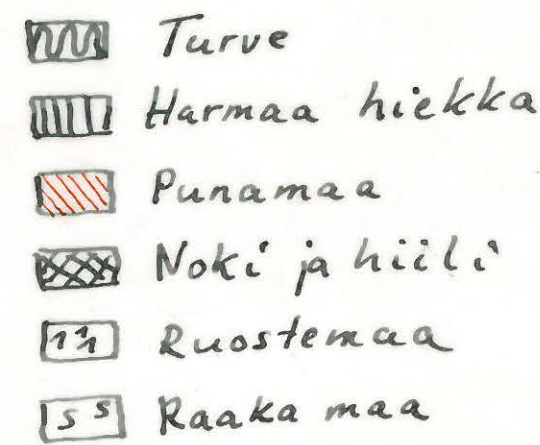 Turve
Harmaa hiekka
Punamaa
Noki ja hiili
111 Ruostemaa
s s Raaka maa